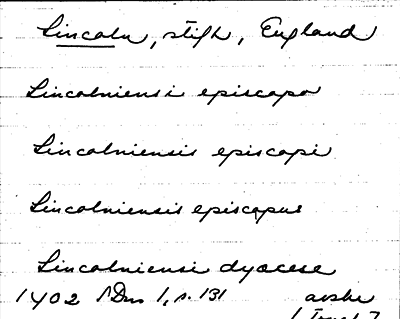 Lincoln, stift, England
Lincolniensi episcopo
Lincolniensis episcopi
Lincolniensis episcopus
Lincolniensi dyocese
1402 SDns 1, s. 131 avskr